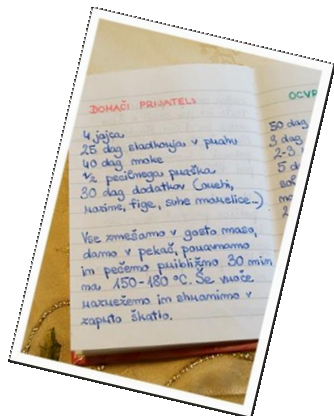 DOMAČI PRIJATELJ
4 jajca
25 dag sladkorja v prahu
40 dag moke
1/2 pecilnega praška
30 dag dodatkov (orehi,
rozine, fige, suhe marelice...)
Vse zmešamo v gosto maso,
damo v pekač, poravnamo
in pečemo približno 30 min
na 150-180 °C. Še vroče
razrežemo in shranimo v
zaprto škatlo.
OCVR
50 dag
3 dag
2-3
5 d